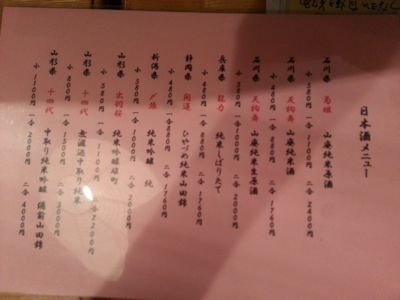 日本酒メニュー
石川県 菊姫 山廃純米原酒
小 580円 一合 1100円 二合 2400円
石川県 天狗舞 山廃純米酒
小 480円 一合 880円 二合 1760円
石川県 天狗舞 山廃純米生原酒
小 580円 一合 1000円 二合 2000円
兵庫県 龍力 純米しぼりたて
小 480円 一合 880円 二合 1760円
静岡県 開運 ひやづめ純米山田錦
小 480円 一合 880円 二合 1760円
新潟県 〆張 純米吟醸 純
小 580円 一合
山形県 純米吟醸雄町
小 580円 一合 1100円 二合 2200円
山形県 十四代 無濾過中取り純米
小 800円 一合 1500円 二合 3000円
山形県 十四代 中取り純米吟醸 備前山田錦
小 1100円 一合 2000円 二合 4000円